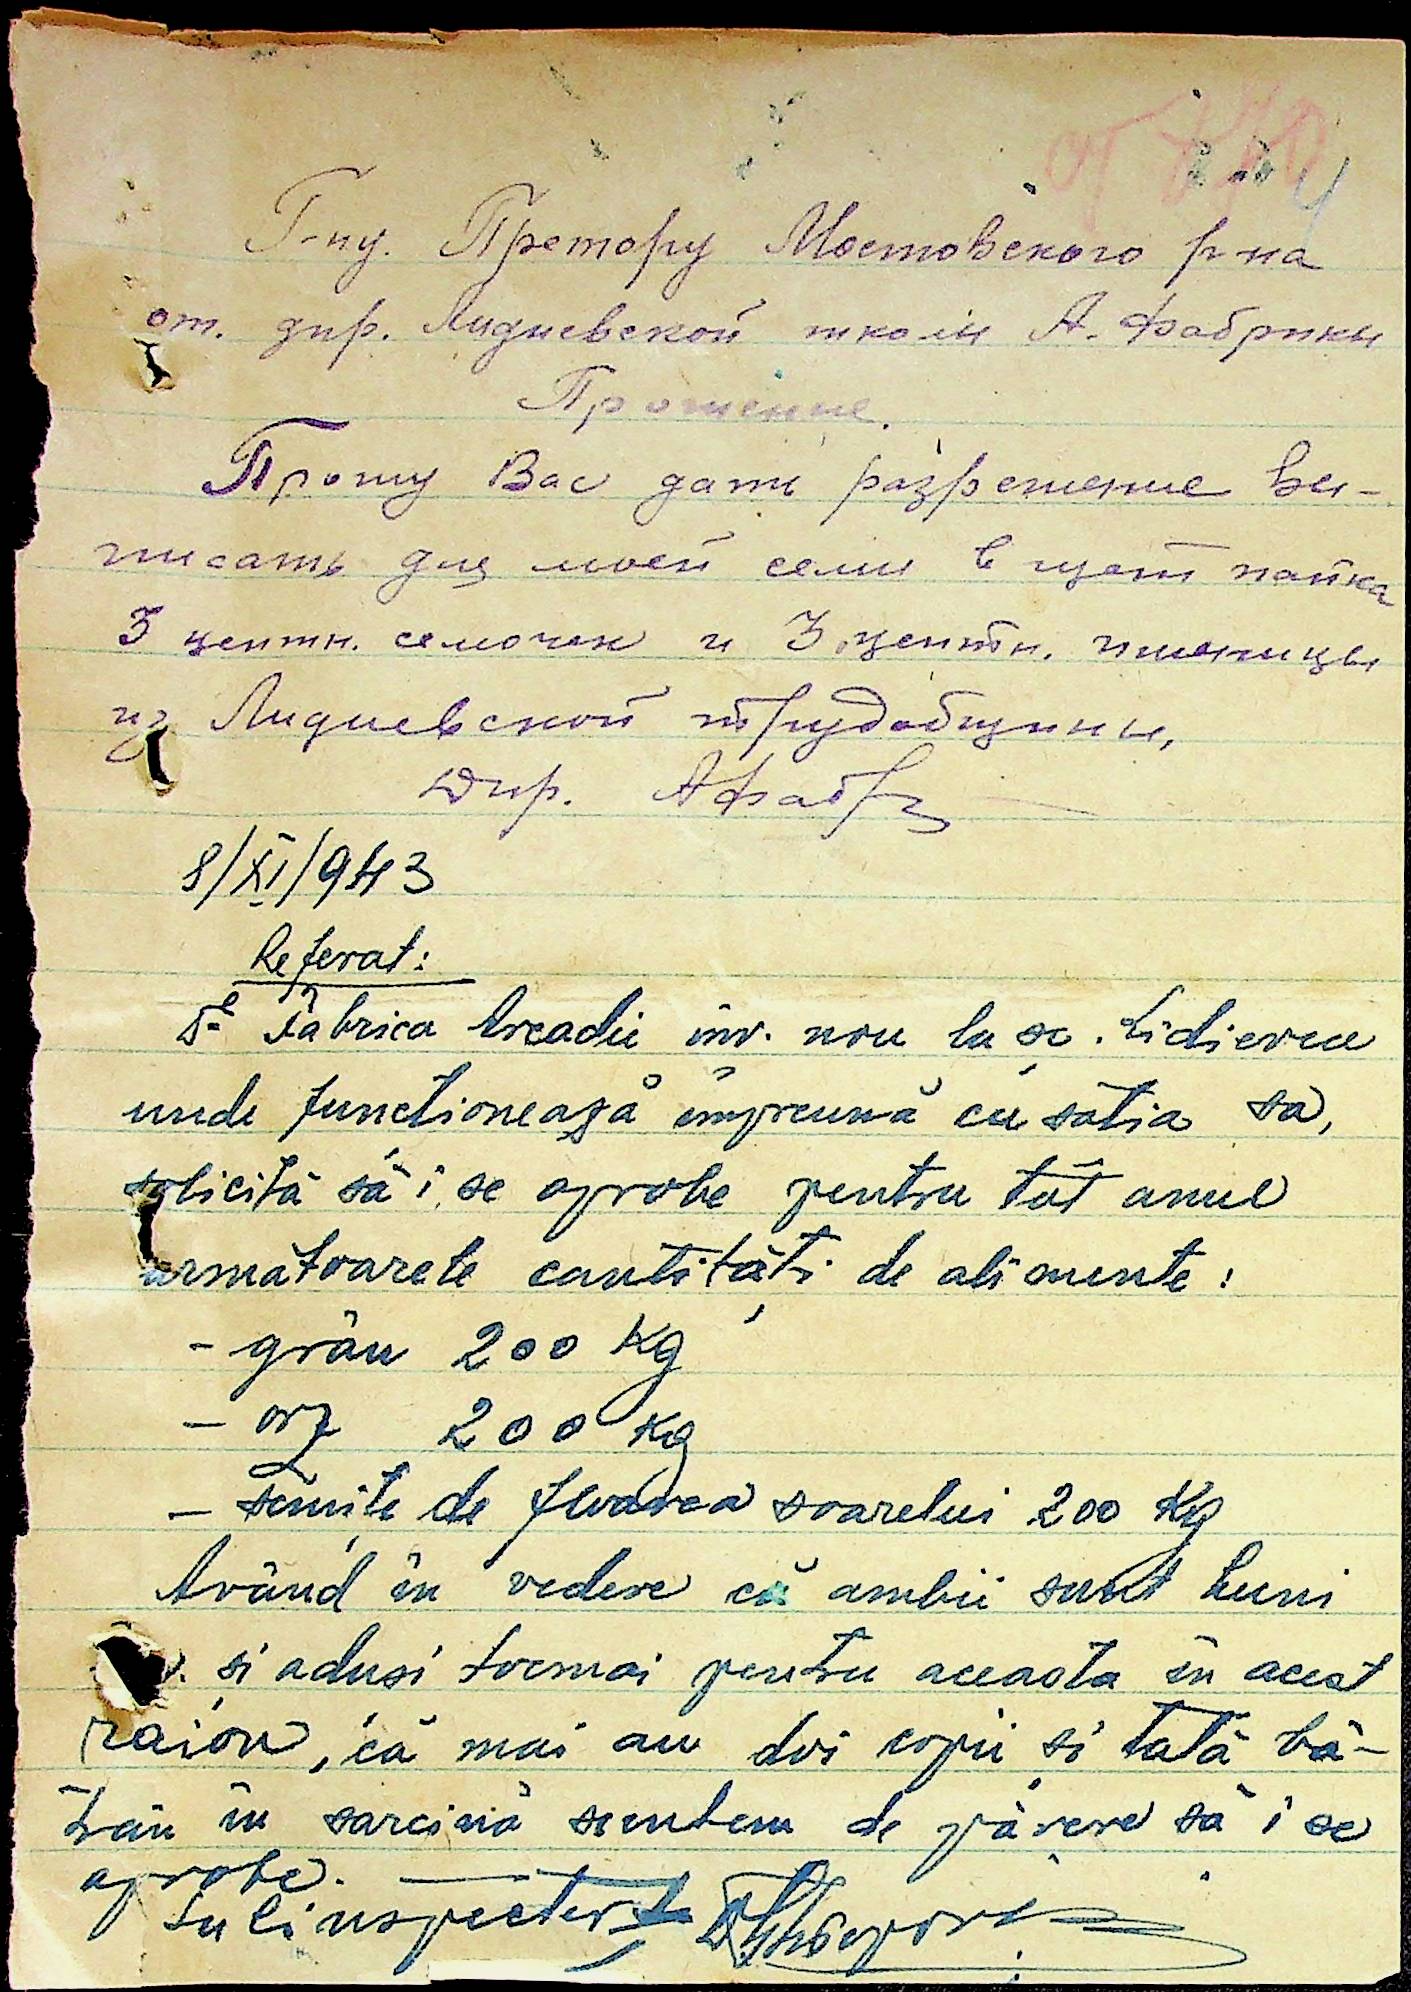 Г-ну. Претору Мостовского р-на
от. дир. Лидиевской школи А. Фабрики
Прошение.
Прошу Вас дать разрешение ви-
писать для моей семи в щет пайка
3 центн. семочек и 3 центн. пшеницы
из Лидиевской трудобщини,
Дир. АФабр
8/XI/943
Referat:
Dl Fabrica Arcadie înv. nou la șc. Lidievca
unde funcționează împreună cu soția sa,
solicită să i se aprobe pentru tot anul
următoarele cantități de alimente:
- grâu 200 Kg
- orz 200 Kg
- semințe de floarea soarelui 200 Kg
Având în vedere că ambii sunt buni
și aduși tocmai pentru aceasta în acest
raion, că mai au doi copii și tată bă-
trân în sarcină suntem de părere să i se
aprobe.
Subinspector